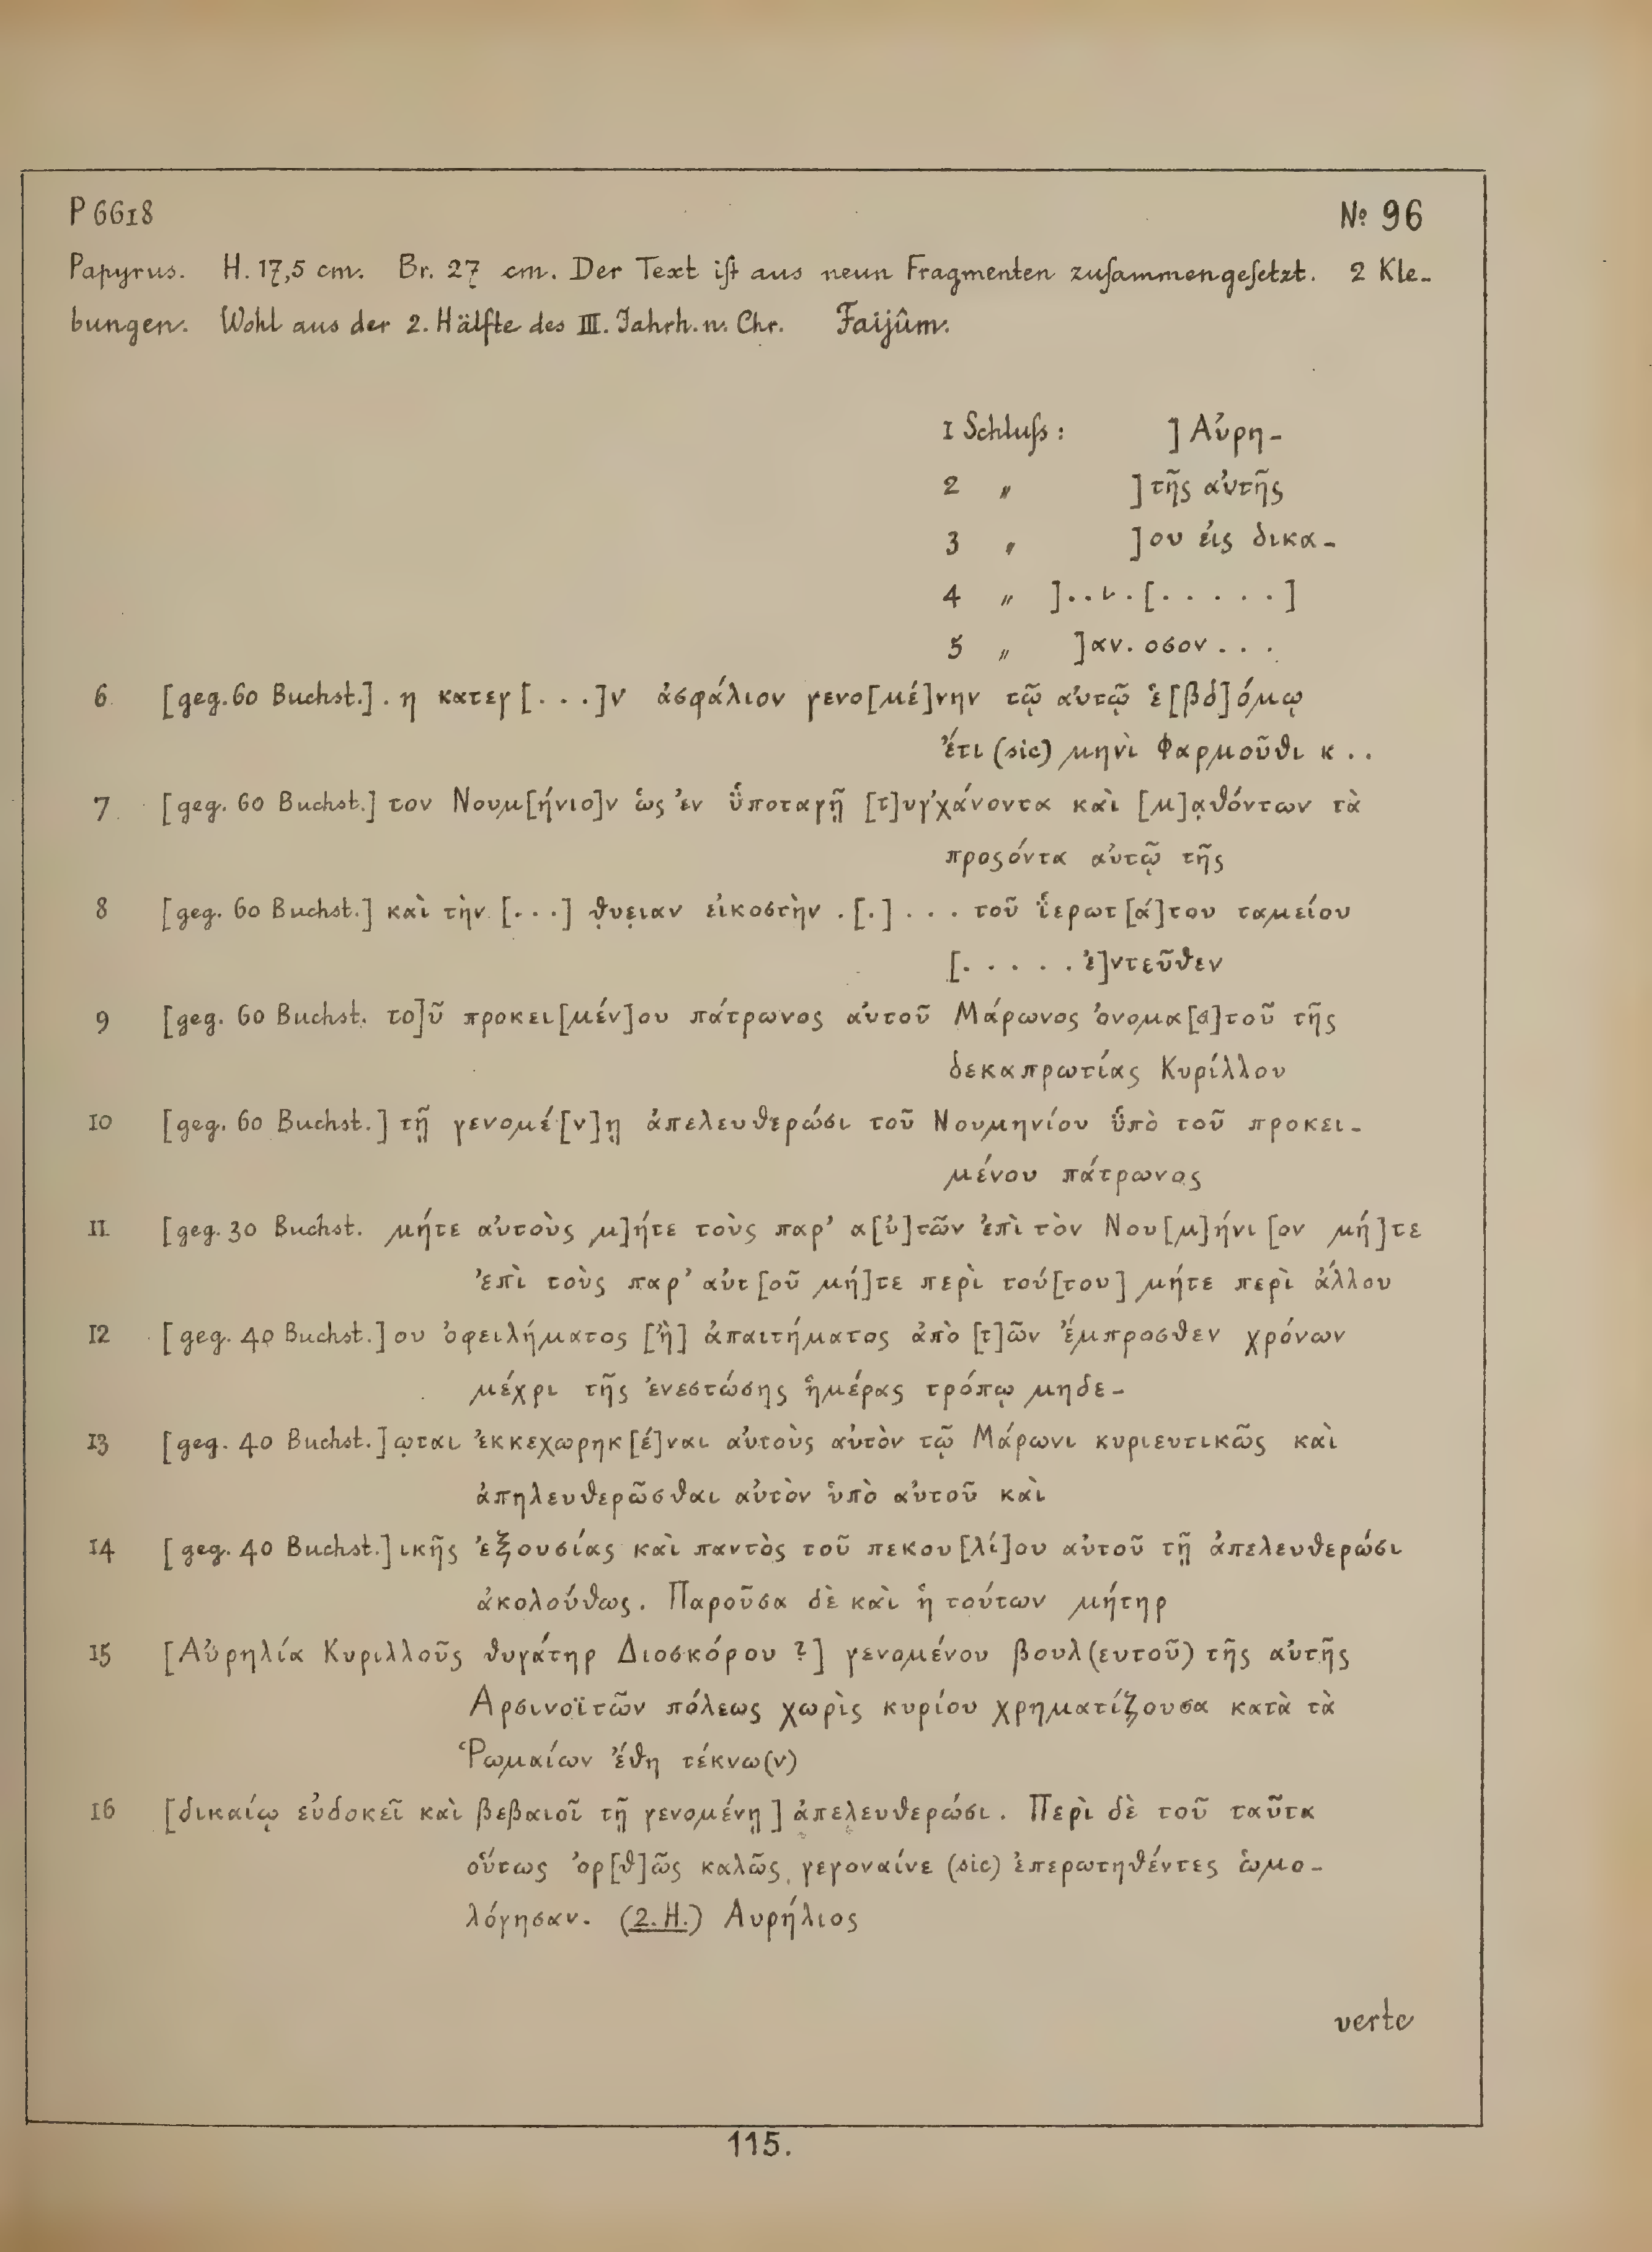 P 6618 № 96
Papyrus. H. 17,5 cm. Br. 27 cm. Der Text iſt aus neun Fragmenten zuſammengeſetzt. 2 Kle-
bungen. Wohl aus der 2. Hälfte des III. Jahrh. n. Chr. Faijûm.
1 Schluſs: ] Αὐρη-
2 〃 ] τῆς αὐτῆς
3 〃 ]ου εἰς δικα-
4 〃 ]..ν.[.....]
5 〃 ]αν. οσον...
6 [geg. 60 Buchst.]. η κατεγ[...]ν ἀσφάλιον γενο[μέ]νην τῷ αὐτῷ ἑ[βδ]όμῳ
ἔτι (sic) μηνὶ Φαρμοῦθι κ..
7 [geg. 60 Buchst.] τον Νουμ[ήνιο]ν ὡς ἐν ὑ̈ποταγῇ [τ]υγ’χάνοντα καὶ [μ]α̣θόντων τὰ
προςόντα αὐτῷ τῆς
8 [geg. 60 Buchst.] καὶ τὴν [...] θ̣υε̣ιαν εἰκοστὴν .[.]... τοῦ ἱ̈ερωτ[ά]του ταμείου
[.....ἐ]ντεῦθεν
9 [geg. 60 Buchst. το]ῦ προκει[μέν]ου πάτρωνος αὐτοῦ Μάρωνος ὀνομα[σ]τοῦ τῆς
δεκαπρωτίας Κυρίλλου
10 [geg. 60 Buchst.] τῇ γενομέ[ν]ῃ ἀπελευθερώσι τοῦ Νουμηνίου ὑ̈πὸ τοῦ προκει-
μένου πάτρωνος
11 [geg. 30 Buchst. μήτε αὐτοὺς μ]ήτε τοὺς παρ’ α[ὐ]τῶν ἐπὶ τὸν Νου[μ]ήνι[ον μή]τε
ἐπὶ τοὺς παρ’ αὐτ[οῦ μή]τε περὶ τού[του] μήτε περὶ ἄλλου
12 [geg. 40 Buchst.]ου ὀφειλήματος [ἢ] ἀπαιτήματος ἀπὸ [τ]ῶν ἔμπροσθεν χρόνων
μέχρι τῆς ἐνεστώσης ἡμέρας τρόπῳ μηδε-
13 [geg. 40 Buchst.]ω̣ται ἐκκεχωρηκ[έ]ναι αὐτοὺς αὐτὸν τῷ Μάρωνι κυριευτικῶς καὶ
ἀπηλευθερῶσθαι αὐτὸν ὑπὸ αὐτοῦ καὶ
14 [geg. 40 Buchst.]ικῆς ἐξουσίας καὶ παντὸς τοῦ πεκου[λί]ου αὐτοῦ τῇ ἀπελευθερώσι
ἀκολούθως. Παροῦσα δὲ καὶ ἡ τούτων μήτηρ
15 [Αὐρηλία Κυριλλοῦς θυγάτηρ Διοσκόρου ?] γενομένου βουλ(ευτοῦ) τῆς αὐτῆς
Αρσινοϊτῶν πόλεως χωρὶς κυρίου χρηματίζουσα κατὰ τὰ
Ῥωμαίων ἔθη τέκνω(ν)
16 [δικαίῳ εὐδοκεῖ καὶ βεβαιοῖ τῇ γενομένῃ] ἀπελευθερώσι. Περὶ δὲ τοῦ ταῦτα
οὕτως ὀρ[θ]ῶς καλῶς γεγοναίνε (sic) ἐπερωτηθέντες ὡμο-
λόγησαν. (2. H.) Αυρήλιος
verte
115.